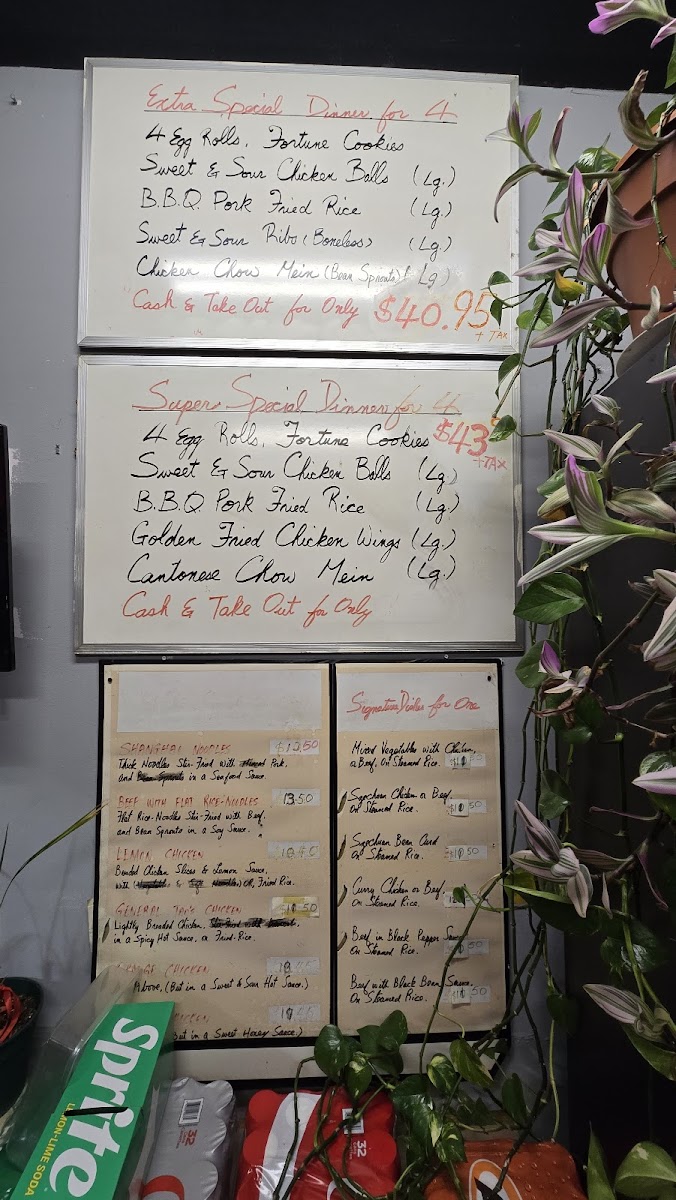 Extra Special Dinner for 4
4 Egg Rolls, Fortune Cookies
Sweet & Sour Chicken Balls (Lg.)
B.B.Q. Pork Fried Rice (Lg.)
Sweet & Sour Ribs (Boneless) (Lg.)
Chicken Chow Mein (Bean Sprouts) (Lg)
Cash & Take Out for Only $40.95
+ TAX
Super Special Dinner for 4
4 Egg Rolls, Fortune Cookies $43
+TAX
Sweet & Sour Chicken Balls (Lg.)
B.B.Q. Pork Fried Rice (Lg.)
Golden Fried Chicken Wings (Lg.)
Cantonese Chow Mein (Lg.)
Cash & Take Out for Only
SHANGHAI NOODLES
Thick Noodles Stir-Fried with Pork,
and in a Seafood Sauce.
BEEF WITH FLAT RICE-NOODLES 13.50
Flat Rice-Noodles Stir-Fried with Beef,
and Bean Sprouts in a Soy Sauce.
LEMON CHICKEN
Breaded Chicken Slices & Lemon Sauce,
with OR, Fried Rice.
GENERAL TAO'S CHICKEN
Lightly Breaded Chicken,
in a Spicy Hot Sauce, or Fried-Rice.
CHICKEN
Above, (But in a Sweet & Sour Hot Sauce.)
CHICKEN
But in a Sweet Honey Sauce.)
Signature Dishes for One
Mixed Vegetables with Chicken,
or Beef, On Steamed Rice.
Szechuan Chicken or Beef,
On Steamed Rice.
Szechuan Bean Curd
On Steamed Rice.
Curry Chicken or Beef,
On Steamed Rice.
Beef in Black Pepper Sauce
On Steamed Rice.
Beef with Black Bean Sauce.
On Steamed Rice.
Sprite
LEMON-LIME SODA
32
32